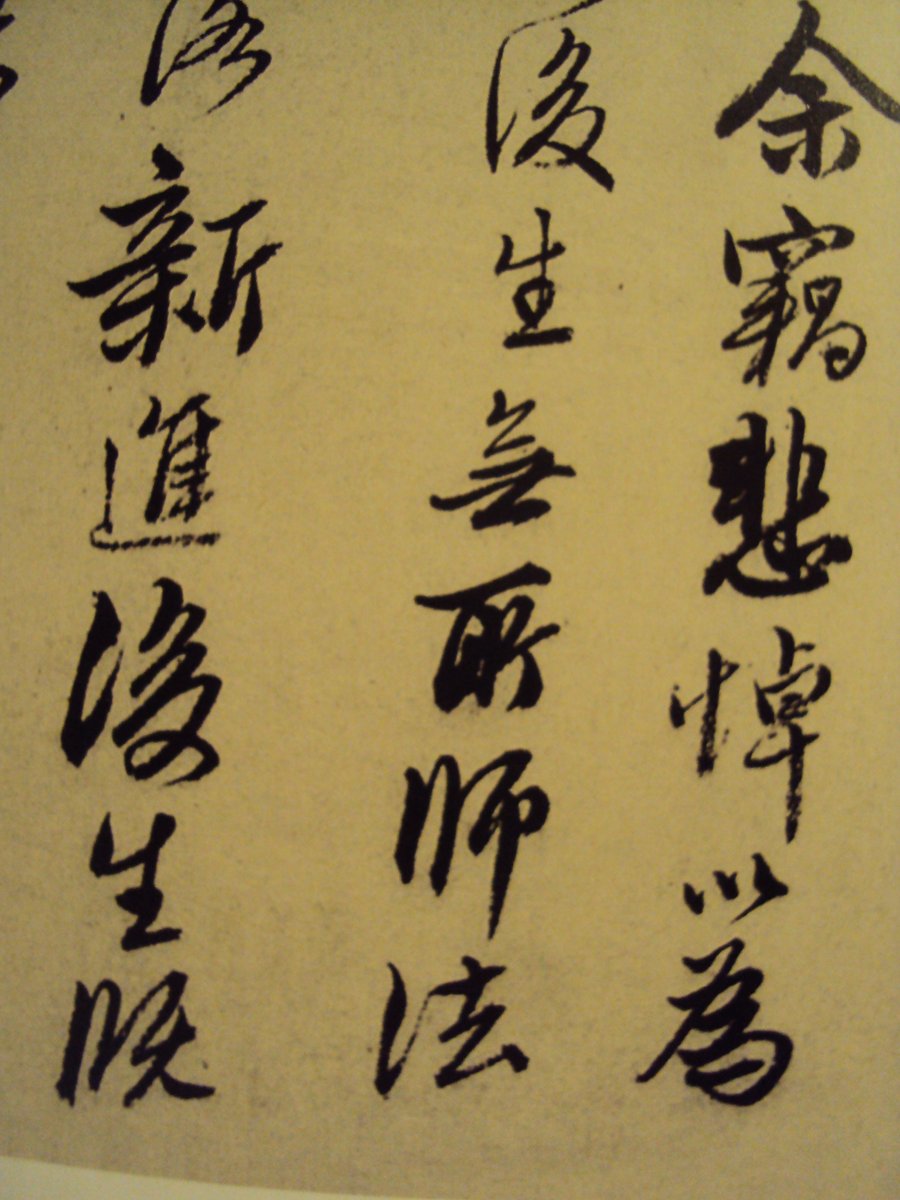 余竊悲悼以為
後生無所師法
新進後生既